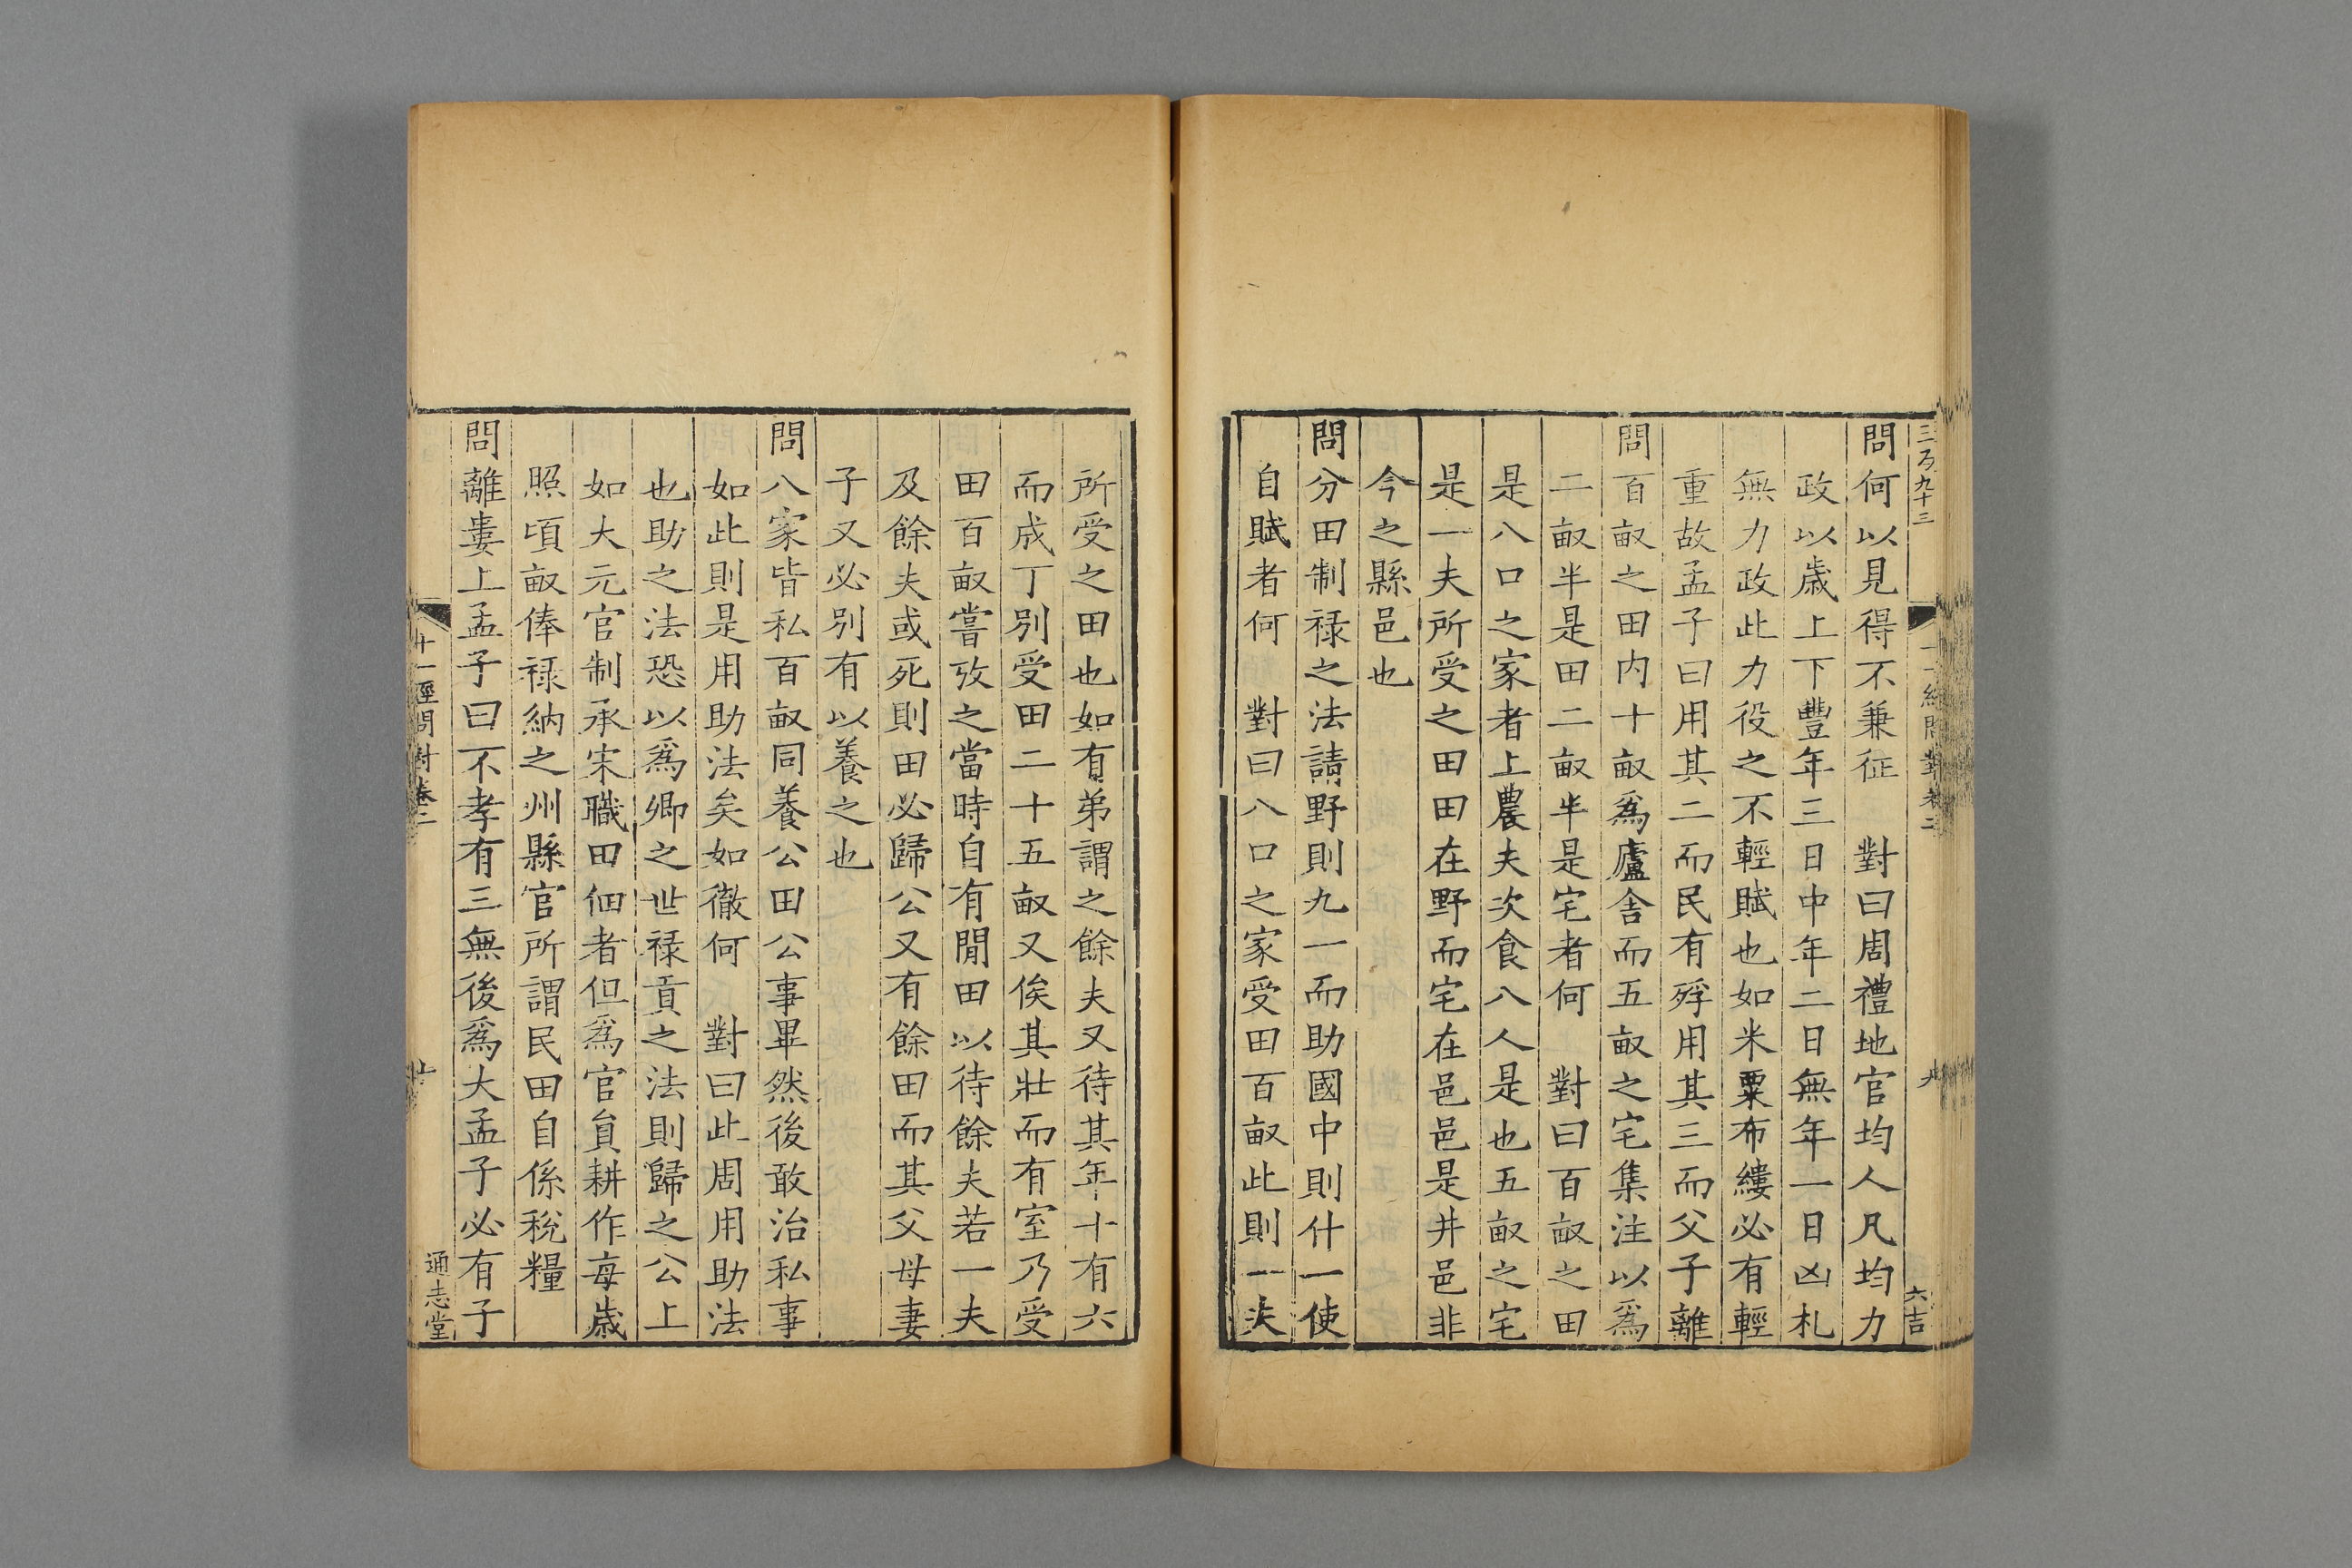 三百九十三
六吉
問何以見得不兼征　對曰周禮地官均人凡均力
政以歲上下豐年三日中年二日無年一日凶札
無力政此力役之不輕賦也如米粟布縷必有輕
重故孟子曰用其二而民有殍用其三而父子離
問百畝之田内十畝爲廬舍而五畝之宅集注以爲
二畝半是田二畝半是宅者何　對曰百畝之田
是八口之家者上農夫次食八人是也五畝之宅
是一夫所受之田田在野而宅在邑邑是井邑非
今之縣邑也
問分田制禄之法請野則九一而助國中則什一使
自賦者何　對曰八口之家受田百畝此則一夫
所受之田也如有弟謂之餘夫又待其年十有六
而成丁別受田二十五畝又俟其壯而有室乃受
田百畝嘗攷之當時自有閒田以待餘夫若一夫
及餘夫或死則田必歸公又有餘田而其父母妻
子又必別有以養之也
問八家皆私百畝同養公田公事畢然後敢治私事
如此則是用助法矣如徹何　對曰此周用助法
也助之法恐以爲卿之世禄貢之法則歸之公上
如大元官制承宋職田佃者但爲官負耕作每歲
照頃畝俸禄納之州縣官所謂民田自係稅糧
問離婁上孟子曰不孝有三無後爲大孟子必有子
十一經問對卷二
通志堂